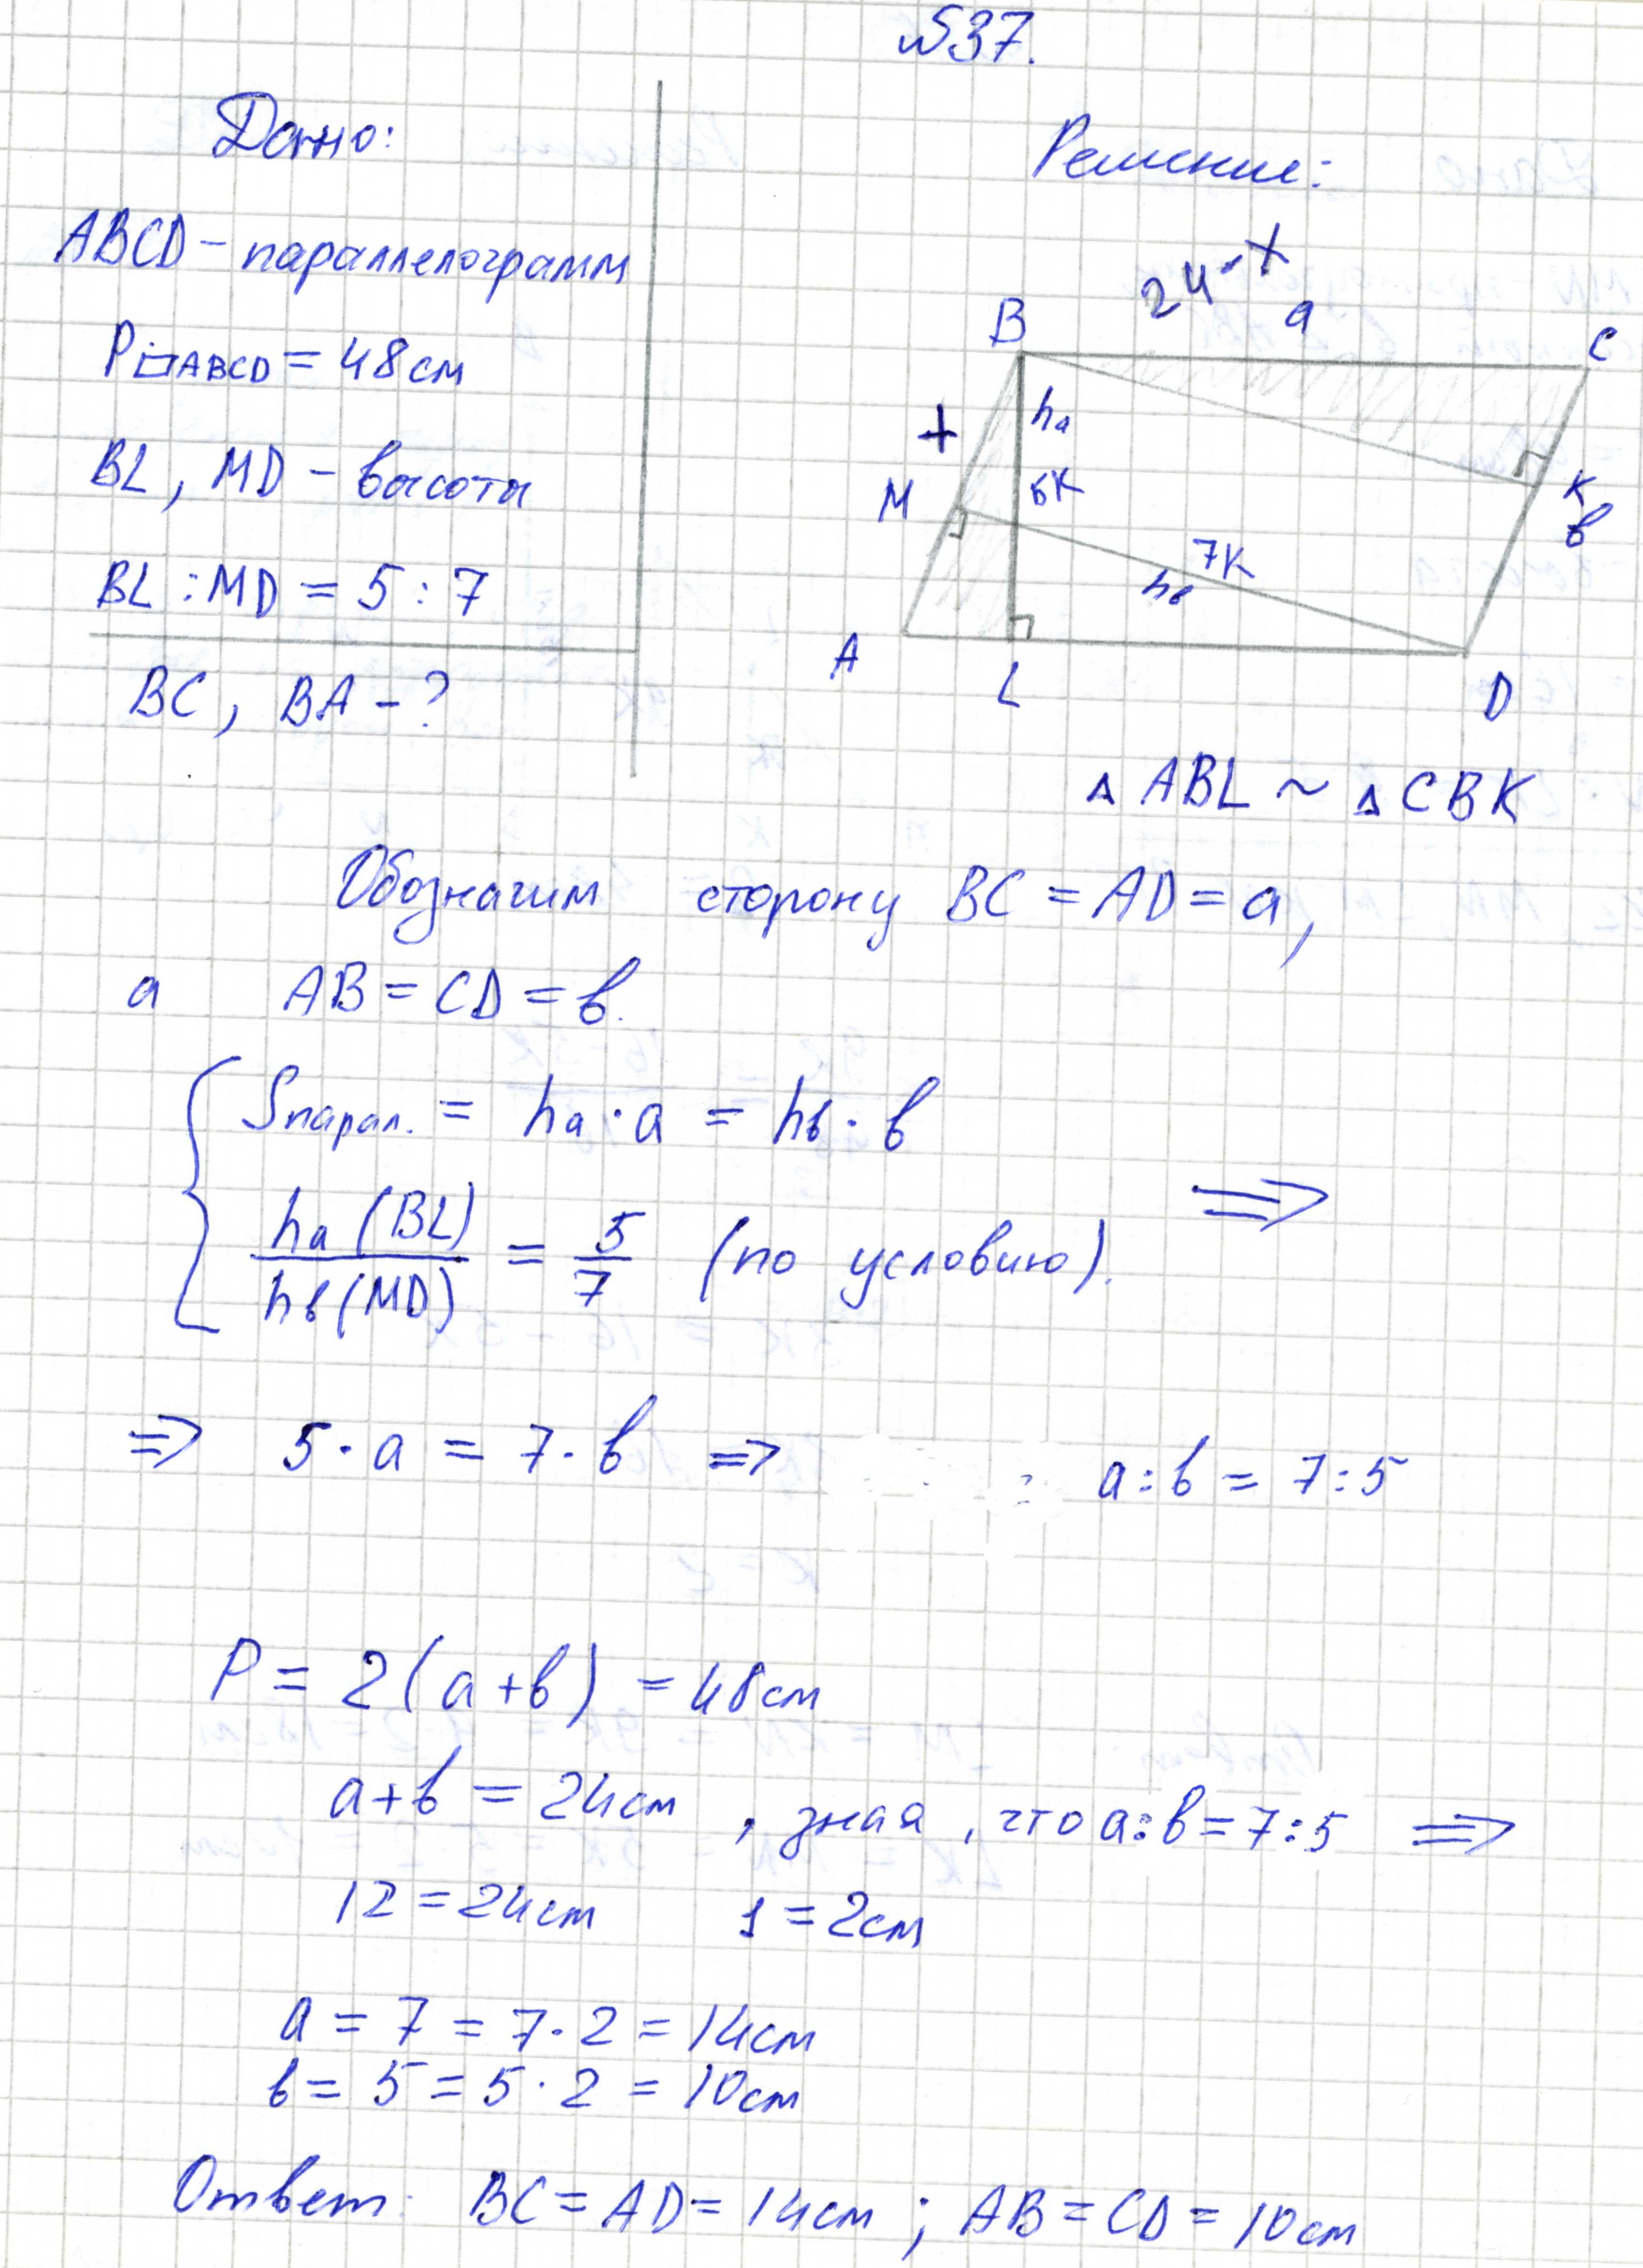 №537.
Дано:
ABCD – параллелограмм
P▱ABCD = 48 см
BL, MD – высоты
BL : MD = 5 : 7
BC, BA – ?
Решение:
24 - x
a
B
C
hₐ
x
M
5К
К
в
7К
hв
A
L
D
△ ABL ~ △ CBK
Обозначим сторону BC = AD = a,
а AB = CD = в.
Sпарал. = hₐ · a = hв · в
hₐ (BL) / hв (MD) = 5/7 (по условию). ⇒
⇒ 5 · a = 7 · в ⇒ a : в = 7 : 5
P = 2(a + в) = 48 см
a + в = 24 см, зная, что a : в = 7 : 5 ⇒
12 = 24 см 1 = 2 см
a = 7 = 7 · 2 = 14 см
в = 5 = 5 · 2 = 10 см
Ответ: BC = AD = 14 см; AB = CD = 10 см